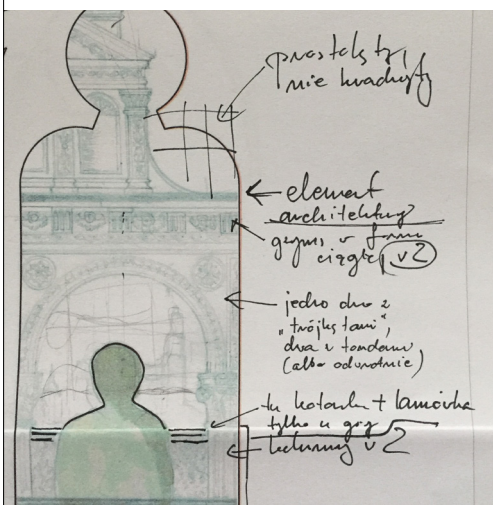 prostokąty,
nie kwadraty
element
architektury
gzyms w formie
ciągłej v2
jedno dno z
"trójkątami",
dwa z tondami
(albo odwrotnie)
tu kotarka + lamówka
tylko u góry
kolumny v2